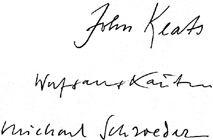 John Keats
Wolfgang Kauten
Michael Schroeder